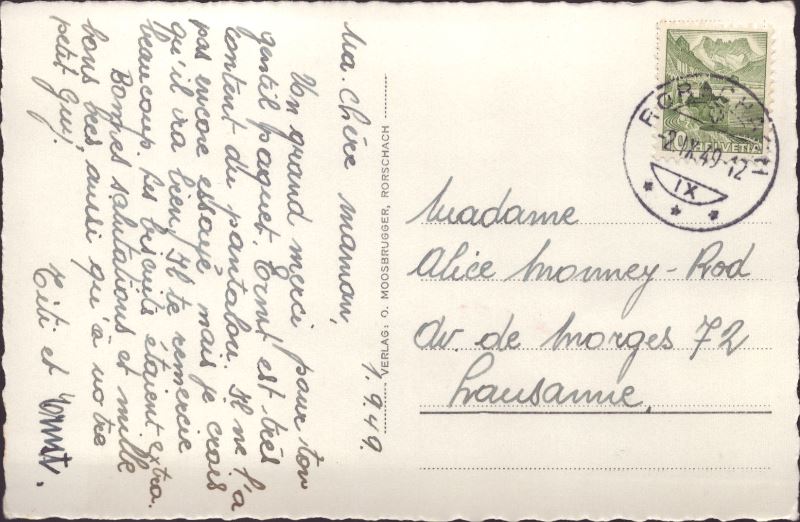 1. 9. 49.
Ma chère maman,
Un grand merci pour ton
gentil paquet. Ernst est très
content du pantalon. Il ne l'a
pas encore essayé mais je crois
qu'il ira bien. Il te remercie
beaucoup. Les biscuits étaient extra.
Bonnes salutations et mille
bons baisers aussi qu'à votre
petit Guy.
Titi et Ernst.
VERLAG: O. MOOSBRUGGER, RORSCHACH
RORSCHACH
-2.IX.49-12
IX
HELVETIA
Madame
Alice Monney-Rod
Av. de Morges 72
Lausanne.